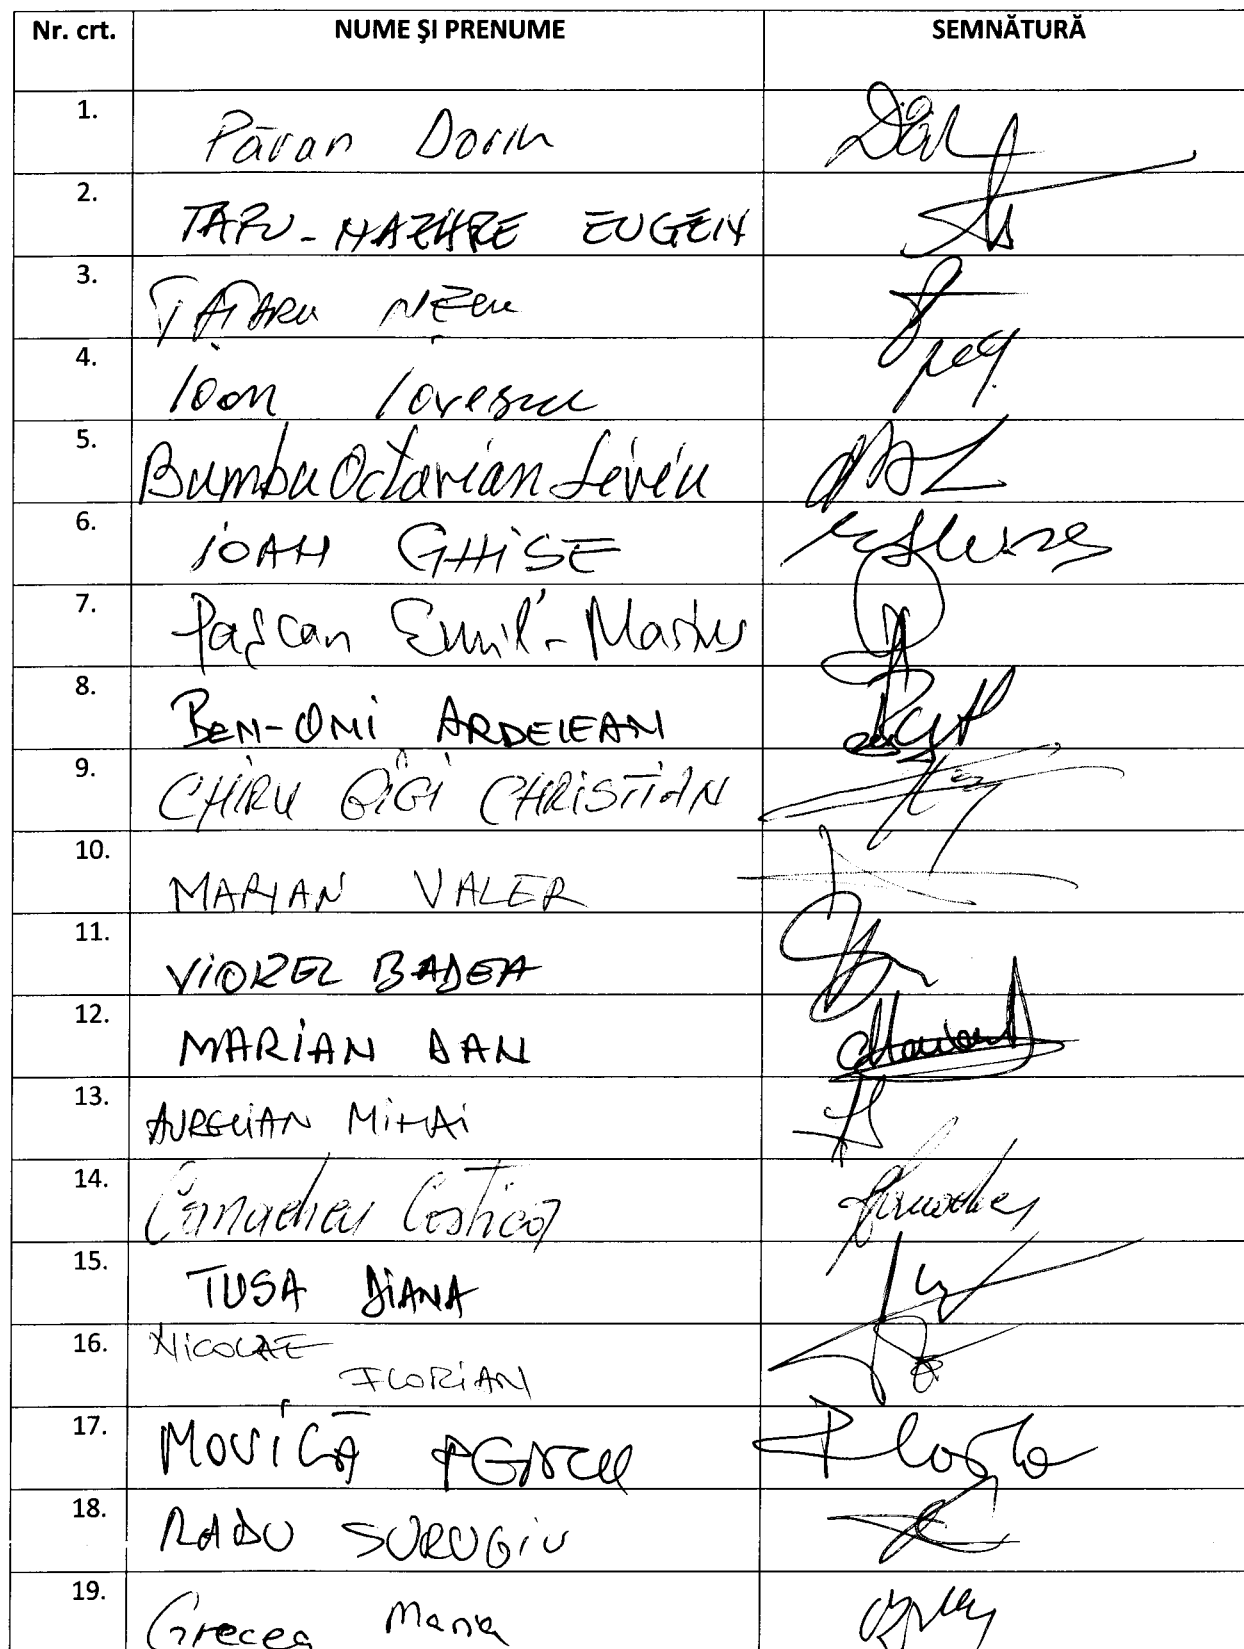 Nr. crt. NUME ŞI PRENUME SEMNĂTURĂ
1. Păran Dorin
2. TAPU-NAZARE EUGEN
3. TĂTARU NEZU
4. Ioan Iovescu
5. Bumbu Octavian Liviu
6. IOAN GHISE
7. Paşcan Emil-Marius
8. BEN-ONI ARDELEAN
9. CHIRU GIGI CHRISTIAN
10. MARIAN VALER
11. VIOREL BADEA
12. MARIAN DAN
13. AURELIAN MIHAI
14. Canacheu Costică
15. TUSA DIANA
16. NICOLAE
FLORIAN
17. MOVILĂ PETRU
18. RADU SURUGIU
19. Grecea Maria